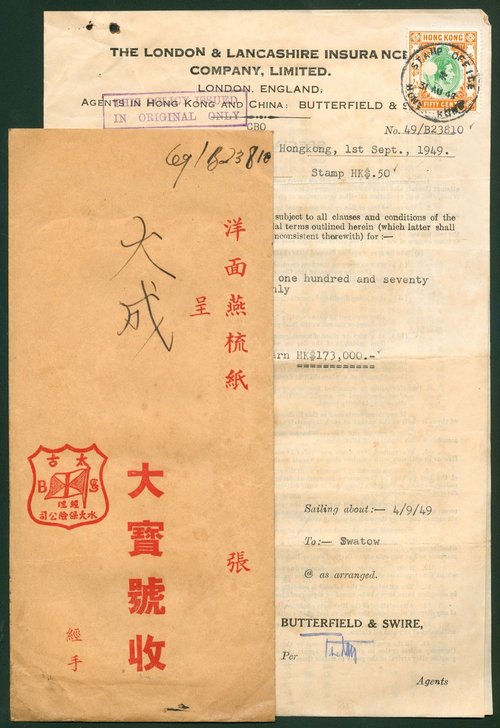 THE LONDON & LANCASHIRE INSURANCE
COMPANY, LIMITED.
LONDON, ENGLAND:
AGENTS IN HONG KONG AND CHINA: BUTTERFIELD & S
THIS POLICY ISSUED
IN ORIGINAL ONLY
HONG KONG
FIFTY CENTS
STAMP OFFICE
31 AU 49
HONG KONG
CBO
No. 49/B23810
Hongkong, 1st Sept., 1949.
Stamp HK$.50
subject to all clauses and conditions of the
al terms outlined herein (which latter shall
nconsistent therewith) for :—
one hundred and seventy
nly
arn HK$173,000.-
Sailing about:— 4/9/49
To:— Swatow
@ as arranged.
BUTTERFIELD & SWIRE,
Per
Agents
69/B23810
洋面燕梳紙
呈
張
大成
大寶號收
太古
B S
經理
水火保險公司
經手